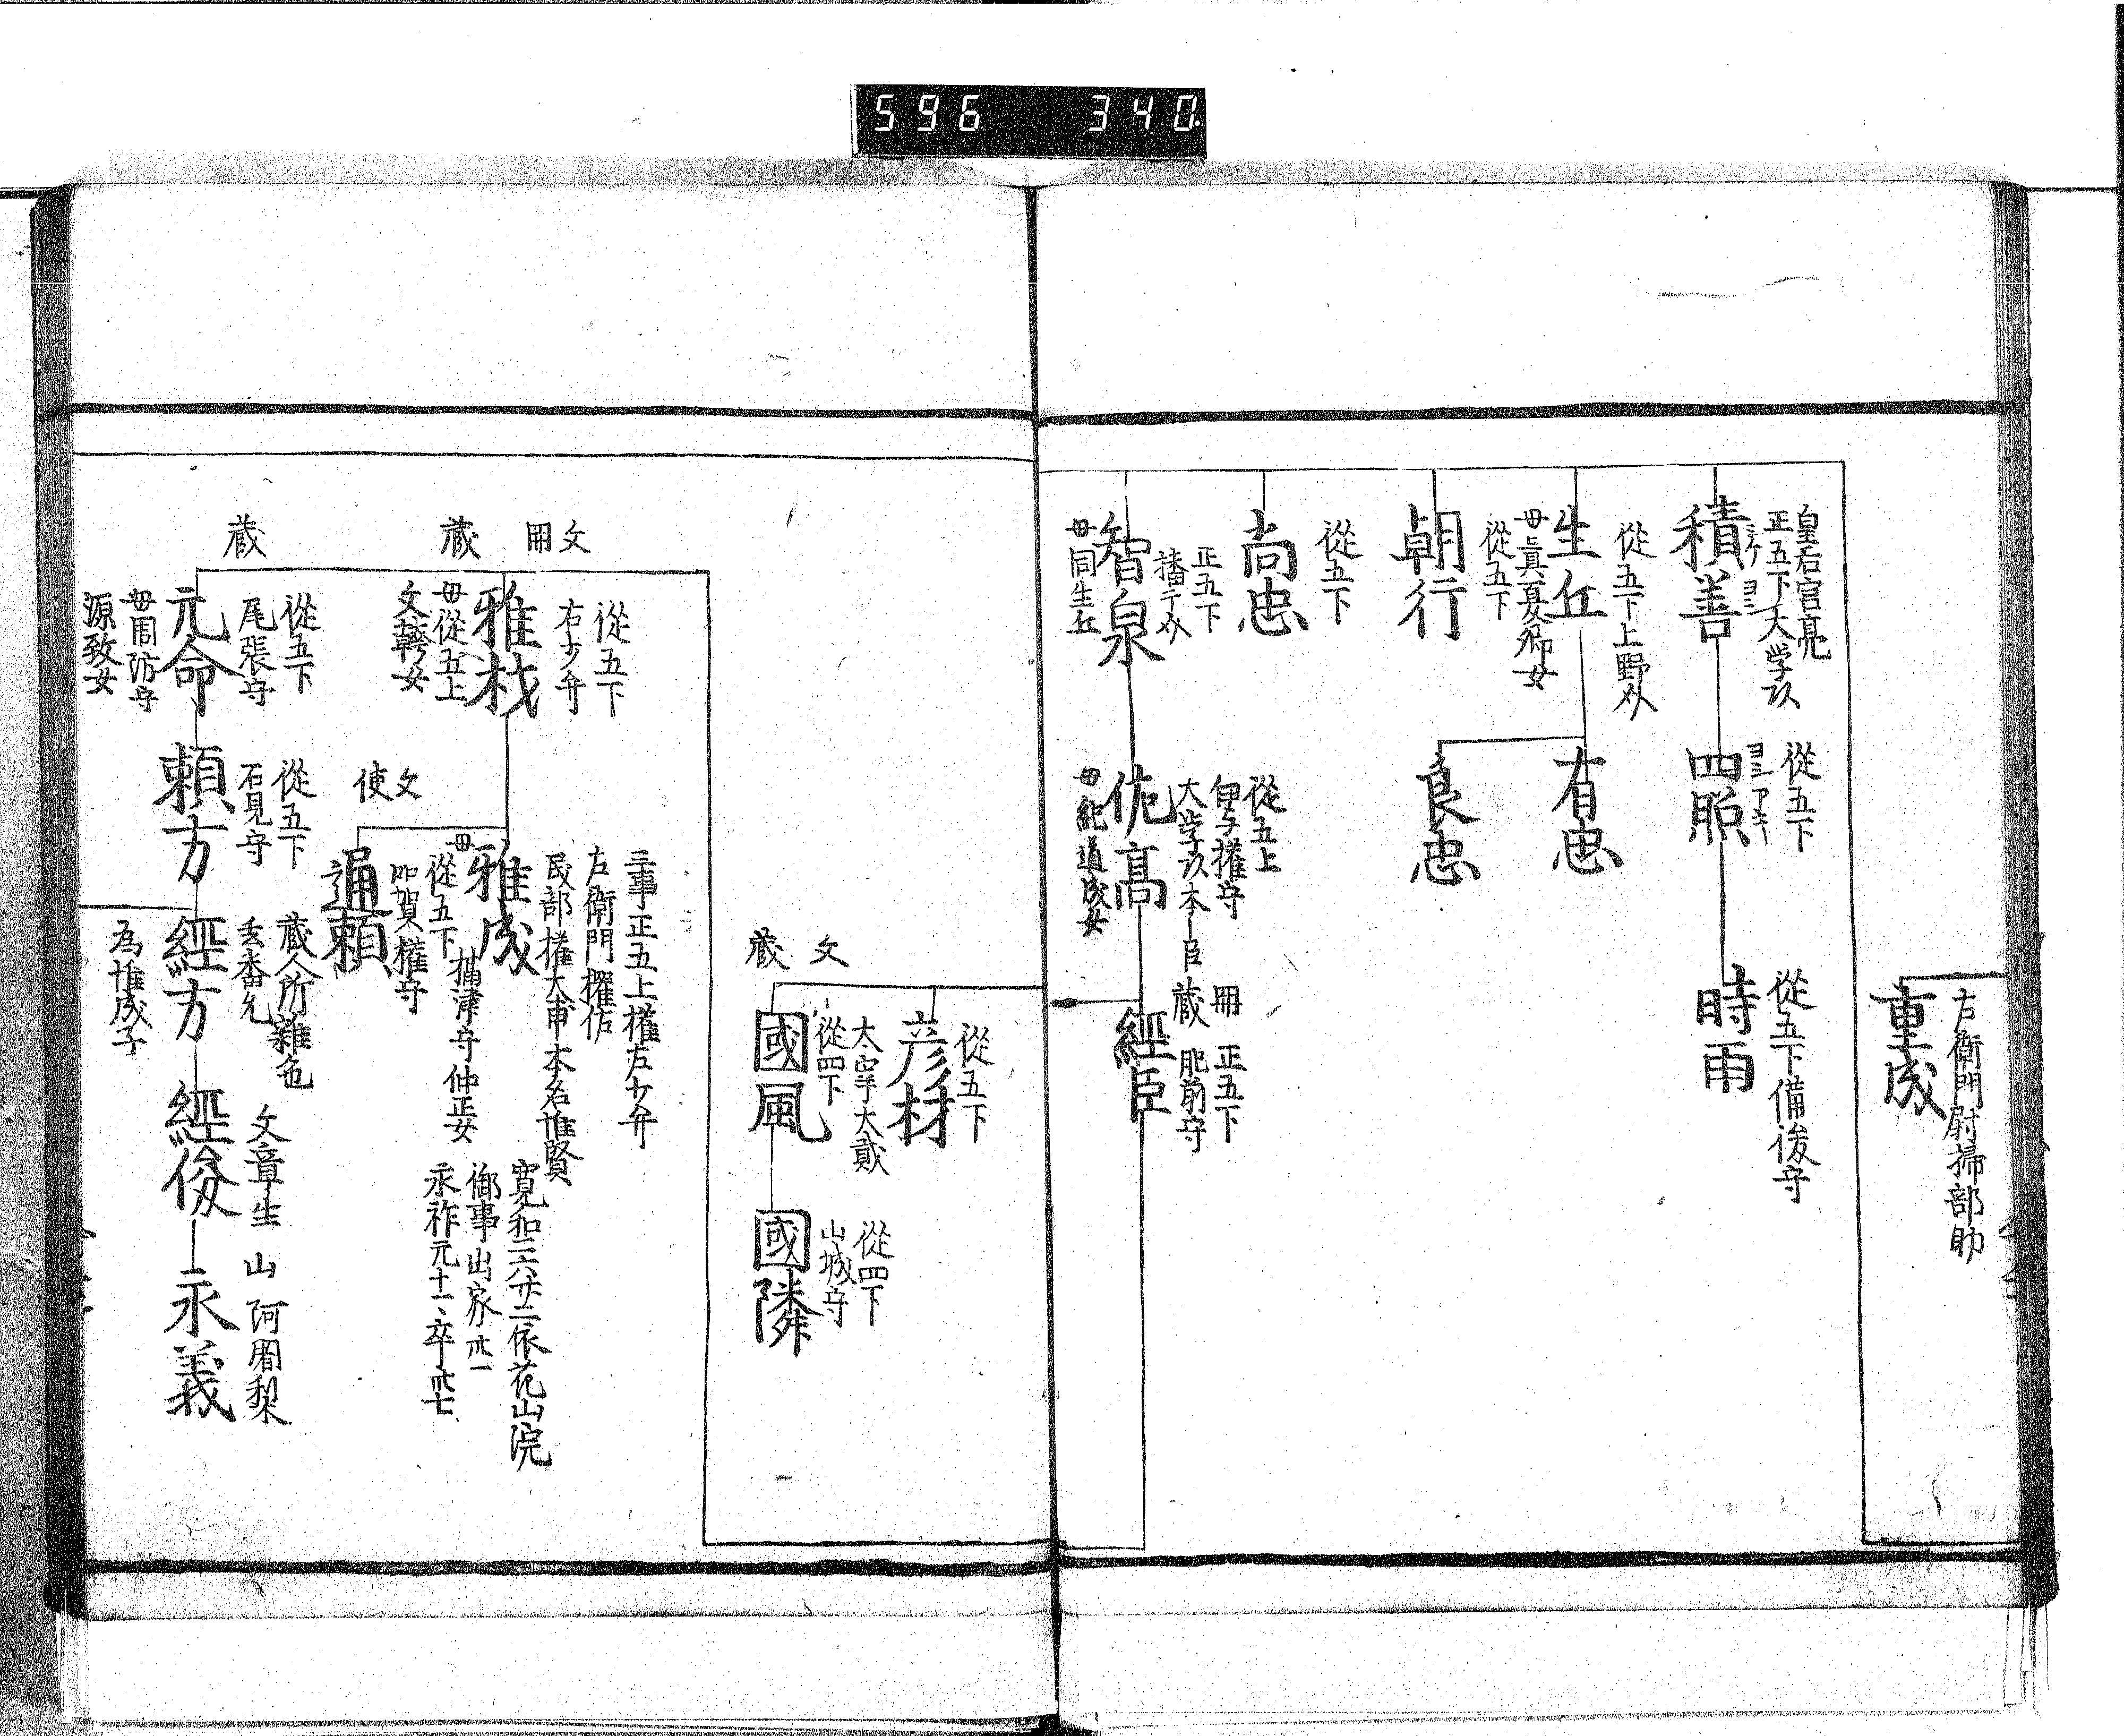 596 340
重成
右衛門尉掃部助
皇后宮亮
正五下大学頭
積善
従五下
四照
従五下備後守
時雨
従五下上野
生丘
母真夏卿女
有忠
良忠
従五下
朝行
従五下
尚忠
正五下
智泉
母同生丘
従五上
伊与権守
佐高
母紀道成女
冊
蔵
正五下
肥前守
經臣
文
蔵
従五下
彦材
太宰大貳
従四下
國風
従四下
山城守
國隣
文
冊
蔵
従五下
右少弁
雅材
母從五上
三事正五上権左少弁
左衛門権佐
民部権大甫本名惟賢
雅成
母
摂津守仲正女
寛和二六廿二依花山院
御事出家卅一
永祚元十一、卒卅七
文
使
従五下
加賀権守
通頼
蔵
従五下
尾張守
元命
母周防守
源致女
従五下
石見守
頼方
蔵人所雑色
玄番允
經方
為惟成子
文章生
經俊
山阿闍梨
永義